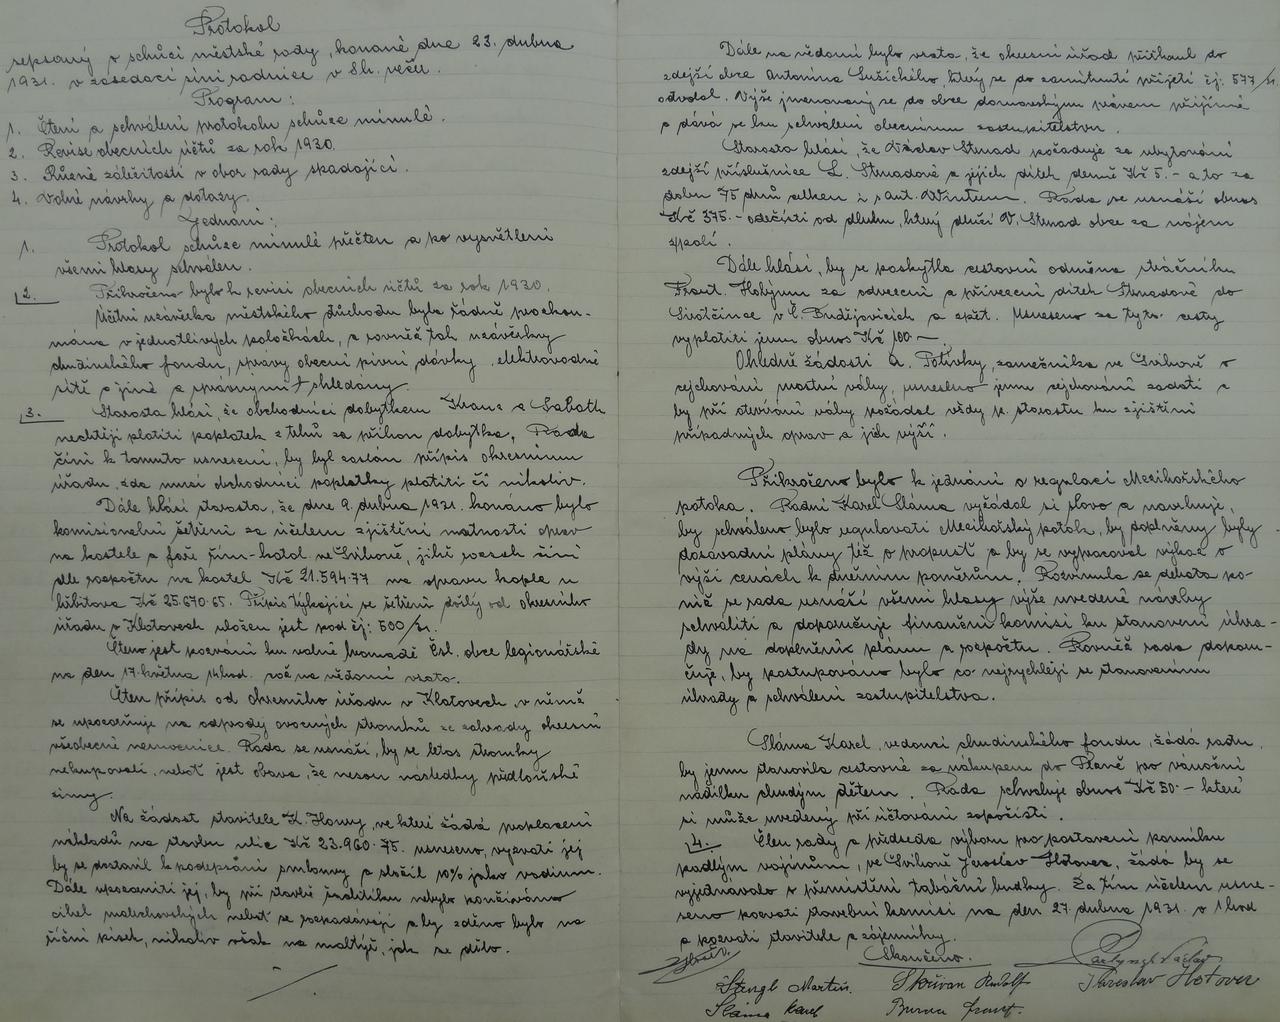 Protokol
sepsaný o schůzi městské rady, konané dne 23. dubna
1931. v zasedací síni radnice v 8h. večer.
Program:
1. Čtení a schválení protokolu schůze minulé.
2. Revise obecních účtů za rok 1930.
3. Různé záležitosti v obor rady spadající.
4. Volné návrhy a dotazy.
Jednání:
1. Protokol schůze minulé přečten a po vysvětlení
všemi hlasy schválen.
2. Přikročeno bylo k revisi obecních účtů za rok 1930.
Účetní uzávěrka městského důchodu byla řádně prozkou-
mána v jednotlivých položkách, a rovněž tak uzávěrky
chudinského fondu, správy obecní pivní dávky, elektrovodné
sítě a jiné a správnými shledány.
3. Starosta hlásí, že obchodníci dobytkem Kraus a Sabath
nechtějí platiti poplatek z trhů za příhon dobytka. Rada
činí k tomuto usnesení, by byl zaslán přípis okresnímu
úřadu, zda musí obchodníci poplatky platiti či nikoliv.
Dále hlásí starosta, že dne 9. dubna 1931. konáno bylo
komisionelní šetření za účelem zjištění nutnosti oprav
na kostele a faře řím-katol. ve Švihově, jichž rozsah činí
dle rozpočtu na kostel Kč 21.594.77 na opravu kaple u
hřbitova Kč 25.670.65. Přípis týkající se šetření došlý od okresního
úřadu v Klatovech uložen jest pod čj: 500/31.
Čteno jest pozvání ku valné hromadě Čsl. obce legionářské
na den 17. května 14 hod. což na vědomí vzato.
Čten přípis od okresního úřadu v Klatovech, v němž
se upozorňuje na odprodej ovocných stromků ze zahrady okresní
všeobecné nemocnice. Rada se usnáší, by se letos stromky
nekupovali, neboť jest obava, že nesou následky předloňské
zimy.
Na žádost stavitele K. Houry, ve které žádá proplacení
nákladů na stavbu ulic Kč 23.960.75. usneseno, vyzvati jej
by se dostavil k podepsání smlouvy a složil 10% jako vadium.
Dále upozorniti jej, by při stavbě špalíčku nebylo používáno
cihel malechovských neboť se rozpadávají a by zděno bylo na
říční písek, nikoliv však na maltýř, jak se dělo.
Dále na vědomí bylo vzato, že okresní úřad přiřknul do
zdejší obce Antonína Lužického, který se do zamítnutí přijetí čj. 577/31.
odvolal. Výše jmenovaný se do obce domovským právem přijímá
a dává se ku schválení obecnímu zastupitelstvu.
Starosta hlásí, že Václav Strnad požaduje za ubytování
zdejší příslušnice L. Strnadové a jejích dítek denně Kč 5.- a to za
dobu 75 dnů celkem i s ant. Rada se usnáší obnos
Kč 375.- odečísti od dluhu, který dluží V. Strnad obce za nájem
z polí.
Dále hlásí, by se poskytla cestovní odměna strážníku
Frant. Hobýmu za odvezení a přivezení dítek Strnadové do
Sirotčince v Č. Budějovicích a zpět. Usneseno za tyto cesty
vyplatiti jemu obnos Kč 100.-
Ohledně žádosti A. Potůvky, zámečníka ve Švihově o
cejchování mostní váhy, usneseno jemu cejchování zadati a
by při otevírání váhy požádal vždy p. starostu ku zjištění
případných oprav a jich výší.
Přikročeno bylo k jednání o regulaci Mezihořského
potoka. Radní Karel Sláma vyžádal si slovo a navrhuje,
by schváleno bylo regulovati Mezihořský potok, by doplněny byly
dosavadní plány též o propusť a by se vypracoval výkaz o
výši cenách k dnešním poměrům. Rozvinula se debata po-
níž se rada usnáší všemi hlasy výše uvedené návrhy
schváliti a doporučuje finanční komisi ku stanovení úhra-
dy na doplněník plánu a rozpočtu. Rovněž rada doporu-
čuje, by postupováno bylo co nejrychleji se stanovením
úhrady a schválení zastupitelstva.
Sláma Karel, vedoucí chudinského fondu, žádá radu,
by jemu stanovila cestovné za nákupem do Plzně pro vánoční
nadílku chudým dětem. Rada schvaluje obnos Kč 50.- které
si může uvedený při účtování započísti.
4. Člen rady a předseda výboru pro postavení pomníku
padlým vojínům, ve Švihově Jaroslav Hotovec, žádá by se
vyjednávalo o přemístění tabáční budky. Za tím účelem usne-
seno pozvati stavební komisi na den 27. dubna 1931. v 1 hod
a pozvati stavitele a zájemníky.
Skončeno.
Stengl Martin.
Skřivan Rudolf
Jaroslav Hotovec
Sláma Karel